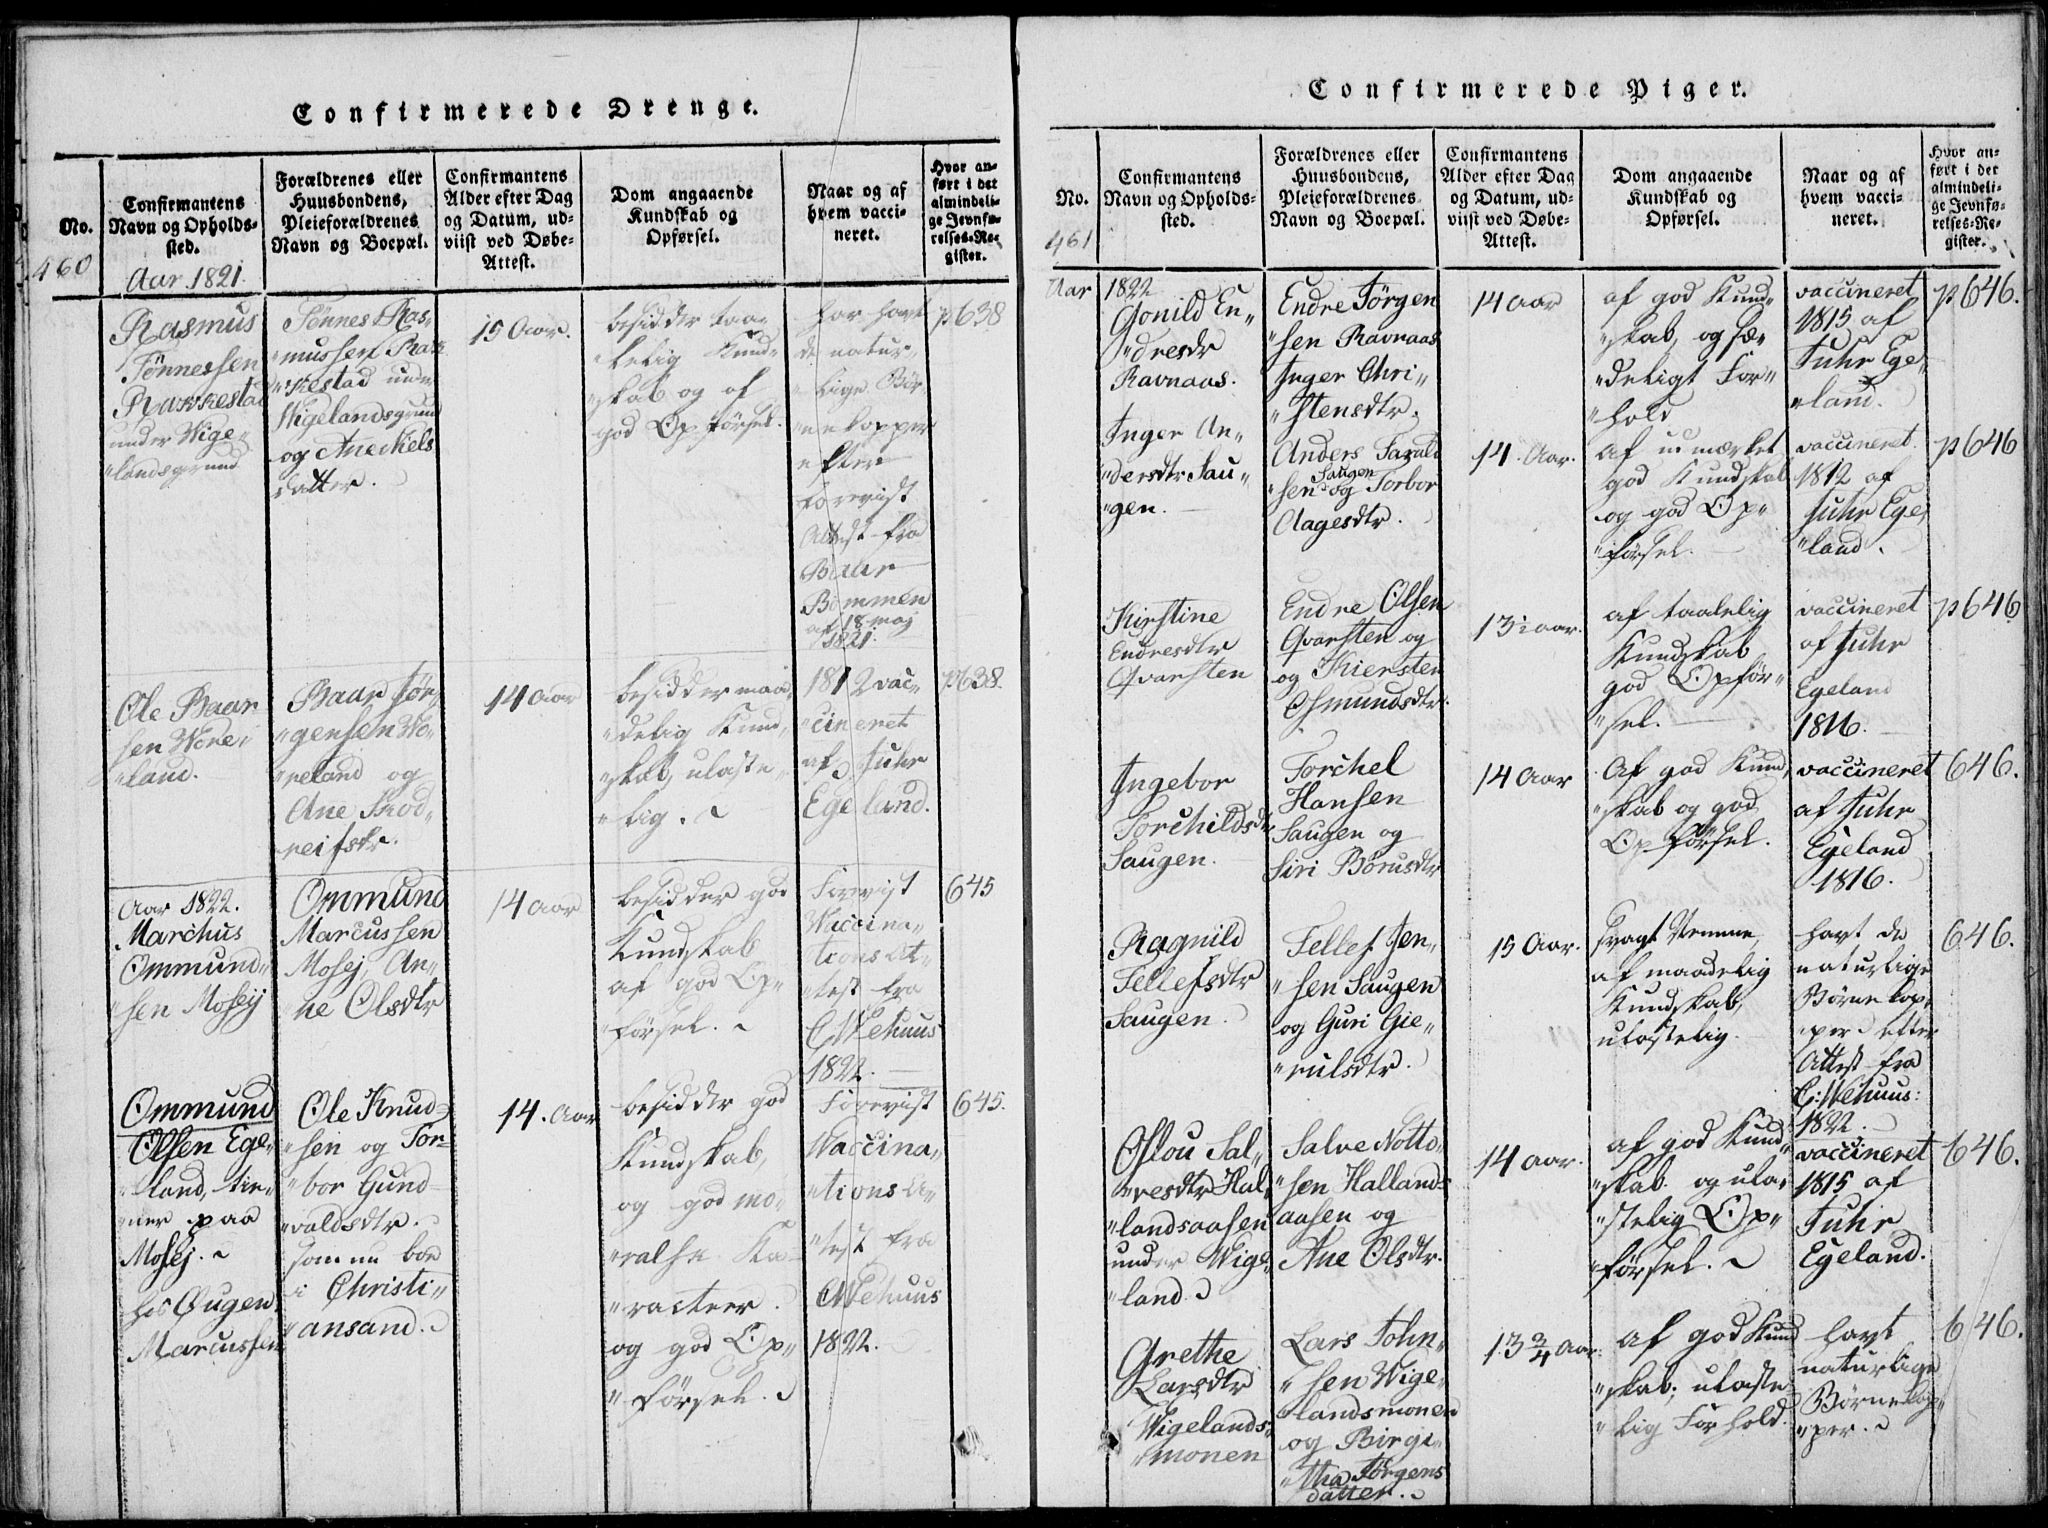 Confirmerede Drenge.
No.
Confirmantens
Navn og Opholds-
sted.
Forældrenes eller
Huusbondens,
Pleieforældrenes
Navn og Boepæl.
Confirmantens
Alder efter Dag
og Datum, ud-
viist ved Døbe-
Attest.
Dom angaaende
Kundskab og
Opførsel.
Naar og af
hvem vacci-
neret.
Hvor an-
ført i det
almindeli-
ge Jevnfø-
relses-Re-
gister.
460
Aar 1821.
Rasmus
Tönnessen
Rarkestad
under Wige„
„landsgrund
Tönnes Ras„
„mussen Rar„
„kestad under
Wigelandsgrund
og Ane Niels
datter.
15 Aar.
besidder taa„
„lelig Kund„
„skab og af
god Opførsel.
har havt
de natur„
„lige Bör„
„nekopper
efter
forevist
Attest fra
Baar
Bommen
af 18 maj
1821.
p638
Ole Baar„
sen Wore„
„land.
Baar Jör„
„gensen Wo„
„reland og
Ane Trod„
reifsdr.
14 Aar
besidder maa„
„delig Kund„
„skab, ulaste„
„lig.
1812 vac„
„cineret
af Fuhr
Egeland.
p638.
Aar 1822.
Marchus
Ommund„
„sen Mosej
Ommund
Marcussen
Mosej, An„
„ne Olsdtr
14 Aar
besidder god
Kundskab
af god Op„
„førsel.
Forevist
Vaccina„
tions At„
„test fra
C. Wehuus
1822.
645
Ommund
Olsen Ege„
„land, tie„
„ner paa
Mosej.
hos Øugen
Marcussen
Ole Knud„
„sen og Tor„
„bor Gund„
„valdsdtr.
som nu boe
i Christi„
„ansand.
14. Aar
besidder god
Kundskab,
og god mo„
„ralsk Ka„
„racteer.
og god Op„
„førsel.
Forevist
Vaccina„
„tions At„
„test fra
C Wehuus
1822.
645.
Confirmerede Piger.
No.
Confirmantens
Navn og Opholds-
sted.
Forældrenes eller
Huusbondens,
Pleieforældrenes
Navn og Boepæl.
Confirmantens
Alder efter Dag
og Datum, ud-
viist ved Døbe-
Attest.
Dom angaaende
Kundskab og
Opførsel.
Naar og af
hvem vacci-
neret.
Hvor an-
ført i det
almindeli-
ge Jevnfø-
relses-Re-
gister.
461
Aar 1822
Gonild En„
„dresdr
Ravnaas.
Endre Jörgen
„sen Ravnaas
Inger Chri„
„stensdtr.
14 Aar
af god Kund„
„skab, og sæ„
„deligt For„
„hold
vaccineret
1815 af
Fuhr Ege„
„land.
p646.
Inger An„
„dersdtr Sau„
„gen.
Anders Taral
„sen Saugen og Torbor
Aagesdtr.
14. Aar.
af udmærket
god Kundskab
og god Op„
„førsel.
vaccineret
1812 af
Fuhr Ege„
„land.
p646
Kirstine
Endresdtr
Qvarsten
Endre Olsen
Qvarsten og
og Kiersten
Osmundsdtr.
13½ aar.
af taalelig
Kundskab
god Opför„
„sel.
vaccineret
af Fuhr
Egeland
1816.
p646
Ingebor
Torchildsdtr
Saugen.
Torchel
Hansen
Saugen og
Siri Börusdtr
14 Aar
Af god Kund„
„skab og god
Opførsel.
vaccineret
af Fuhr
Egeland
1816.
646.
Ragnild
Tellefsdtr
Saugen.
Tellef Jen„
„sen Saugen
og Guri Gie„
„rulsdtr.
15 Aar.
svagt Nemme,
af maadelig
Kundskab,
ulastelig.
havt de
naturlige
Börnekop„
„per efter
Attest fra
C: Wehuus:
1822.
646.
Oslou Sal„
„vesdtr Hal„
„landsaasen
under Wige„
„land.
Salve Notto„
„sen Hallands
aasen og
Ane Olsdtr.
14 aar.
af god Kund„
„skab og ula„
„stelig Op„
„førsel.
vaccineret
1815 af
Fuhr
Egeland.
646.
Grethe
Larsdtr
Wigelands„
„monen
Lars John„
„sen Wige„
„landsmonen
og Birgi„
„tha Jörgens
datter.
13 3/4 Aar.
af god Kund
„skab; ulaste„
„lig Forhold.
havt
naturlige
Börnekop„
„per.
646.